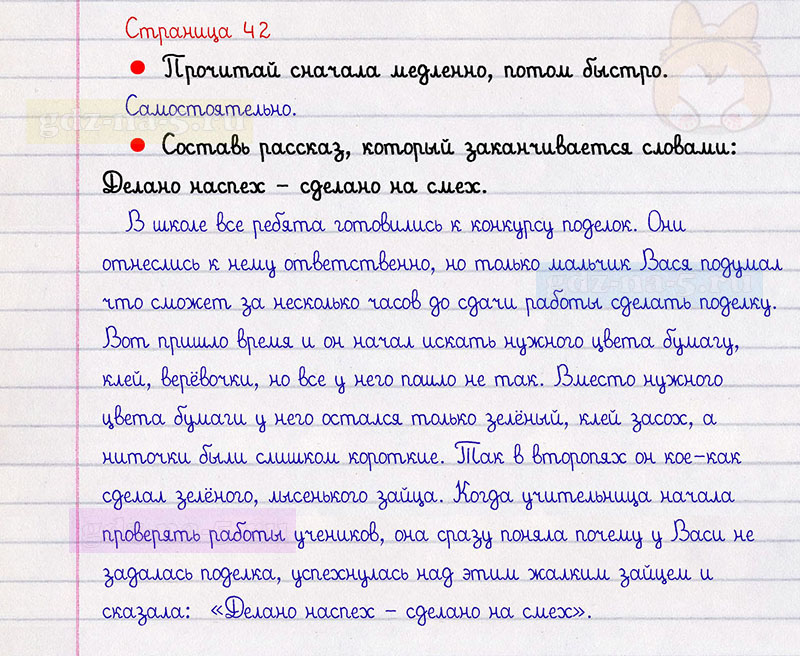 Страница 42
Прочитай сначала медленно, потом быстро.
Самостоятельно.
gdz-na-s.ru
Составь рассказ, который заканчивается словами:
Делано наспех – сделано на смех.
В школе все ребята готовились к конкурсу поделок. Они
отнеслись к нему ответственно, но только мальчик Вася подумал
gdz-na-s.ru
что сможет за несколько часов до сдачи работы сделать поделку.
Вот пришло время и он начал искать нужного цвета бумагу,
клей, верёвочки, но все у него пашло не так. Вместо нужного
цвета бумаги у него остался только зелёный, клей засох, а
ниточки были слишком короткие. Так в второпях он кое-как
сделал зелёного, лысенького зайца. Когда учительница начала
проверять работы учеников, она сразу поняла почему у Васи не
задалась поделка, успехнулась над этим жалким зайцем и
сказала: «Делано наспех – сделано на смех».